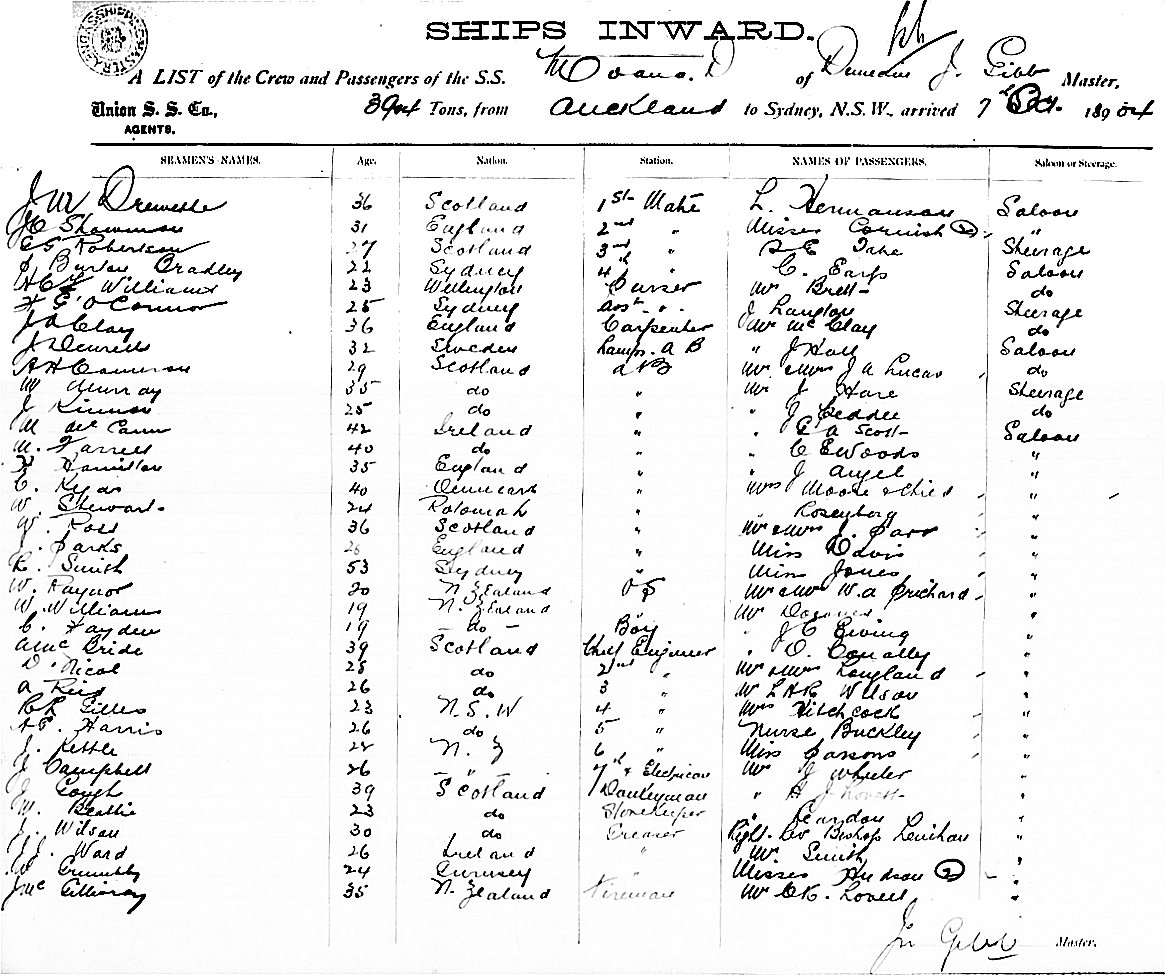 SHIPS INWARD.
A LIST of the Crew and Passengers of the S.S. Moana of Dunedin J. Gibb Master,
Union S. S. Co., Tons, from Auckland to Sydney, N.S.W., arrived 7th 189
AGENTS.
SEAMEN'S NAMES. Age. Nation. Station. NAMES OF PASSENGERS. Saloon or Steerage.
J W 36 Scotland 1st Mate L. Hermanson Saloon
31 England 2nd " Misses Cornish 2 "
Robertson 27 Scotland 3rd " Steerage
Burton Bradley 22 Sydney 4th " C. Earp Saloon
Williams 23 Wellington Purser Mr Brett do
O'Connor 25 Sydney Asst " J Langton Steerage
Clay 36 England Carpenter Mr McClay do
J. 32 Sweden Lamps. A B " J Hall Saloon
A H Cameron 29 Scotland A B Mr & Mrs J A Lucas do
W Murray 35 do " Mr J Hare Steerage
J 25 do " " J Peddie do
M McCann 42 Ireland " " G A Scott Saloon
M. Farrell 40 do " " C E Woods "
Hamilton 35 England " " J Angel "
C. 40 Denmark " Mrs Moore & Child "
W. Stewart 24 " " Rosenberg "
W. Ross 36 Scotland " Mr & Mrs J. Parr "
J. Parks 26 England " Miss Davis "
R. Smith 53 Sydney " Miss Jones "
W. Raynor 20 N. Zealand O S Mr & Mrs W. A Prichard "
W. Williams 19 N. Zealand Mr "
C. Hayden 19 do Boy " J C Ewing "
A McBride 39 Scotland Chief Engineer " O. Conally "
D. Nicol 28 do 2nd " Mr & Mrs Longland "
A Reid 26 do 3 " Mr L H R Wilson "
Gilles 23 N.S.W 4 " Mrs Hitchcock "
A E. Harris 26 do 5 " Nurse Buckley "
J. Kettle 28 N. Z 6 " Miss Parsons "
J Campbell 26 " 7th & Electrician Mr J Wheeler "
J Gough 39 Scotland Donkeyman " H J Lovett "
M. Beattie 23 do Storekeeper " "
J. Wilson 30 do Greaser Right. Rev Bishop Lenihan "
J. J. Ward 26 Ireland " Mr Smith "
24 Guernsey Misses Hudson 2 "
J Mc 35 N. Zealand Fireman Mr C K. Lovell "
Jn Gibb Master.